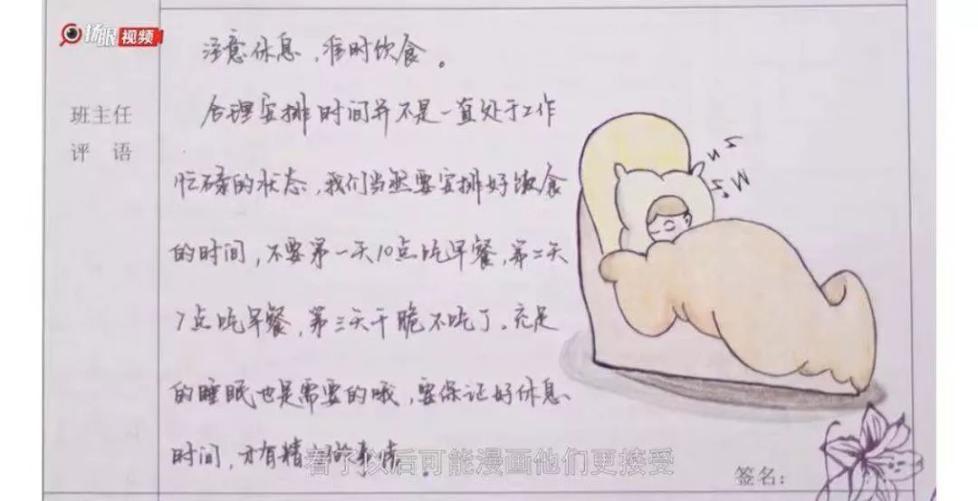 扬眼视频
班主任
评 语
注意休息,准时饮食。
合理安排时间并不是一直处于工作
忙碌的状态,我们当然要安排好饮食
的时间,不要第一天10点吃早餐,第二天
7点吃早餐,第三天干脆不吃了。充足
的睡眠也是需要的哦,要保证好休息
时间,才有精力做事情。
看了以后可能漫画他们更接受
签名: